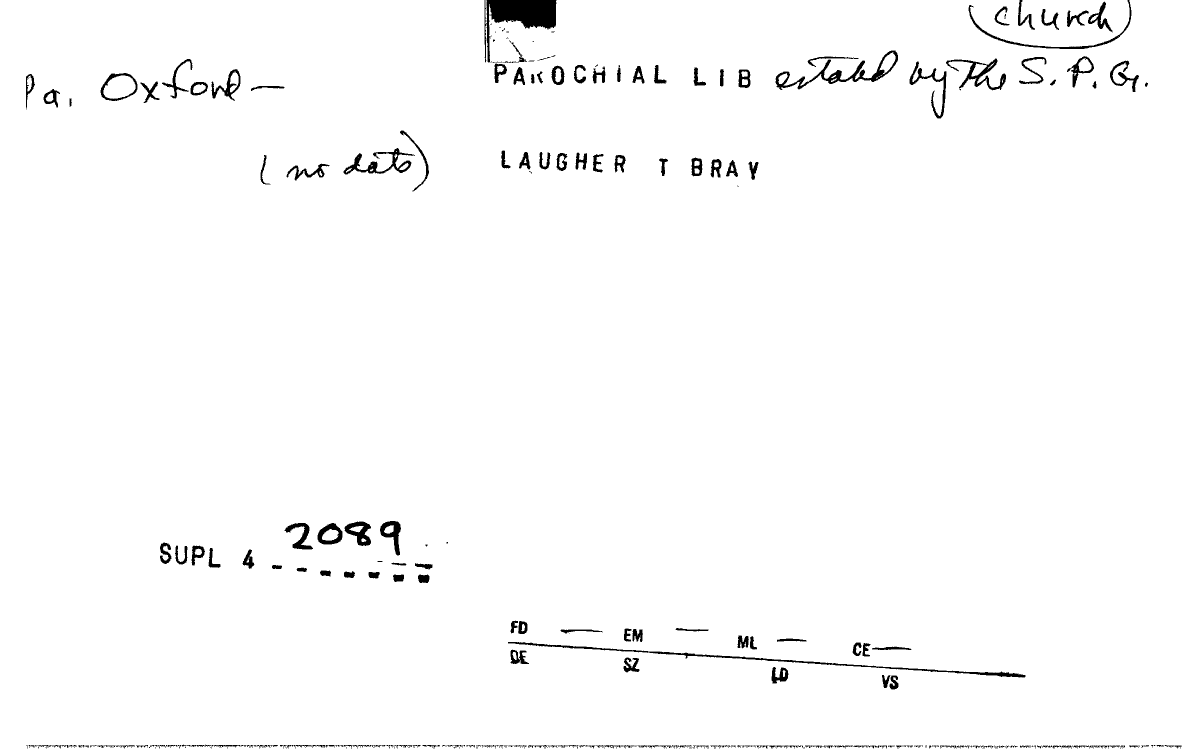 church
Pa. Oxford — PAROCHIAL LIB estabd by the S. P. G.
(no date) LAUGHER T BRAY
2089
SUPL 4 _ _ _ _ _ _ _
FD — EM — ML — CE —
DE SZ LD VS